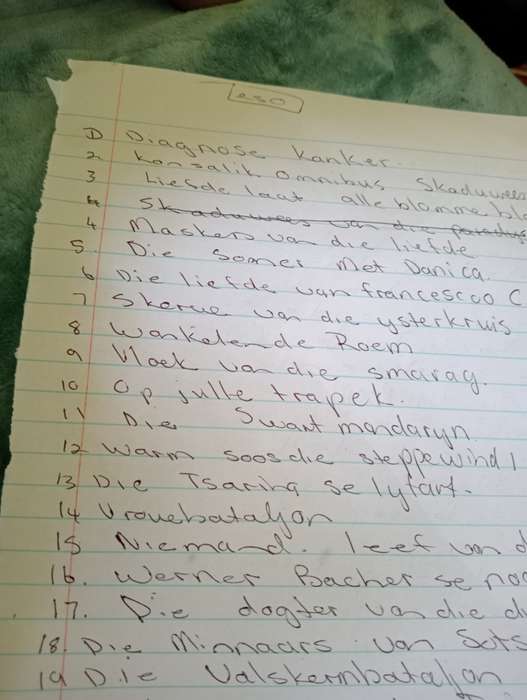 250
1) Diagnose kanker.
2 Konsalik omnibus Skaduwees
3 Liefde laat alle blomme bl
4 Skaduwees van die paradys
4 Maskers van die liefde
5. Die Somer Met Danica.
6 Die liefde van francescco C
7 Skerwe van die ysterkruis
8 Wankelende Roem
9 Vloek van die smarag.
10 Op julle trapek.
11 Die Swart mandaryn
12 Warm soos die steppewind
13 Die Tsarina se lyfart.
14 Vrouebataljon
15 Niemand. leef van d
16. Werner Bacher se
17. Die dogter van die d
18. Die Minnaars van Sots
19 Die Valskermbataljon